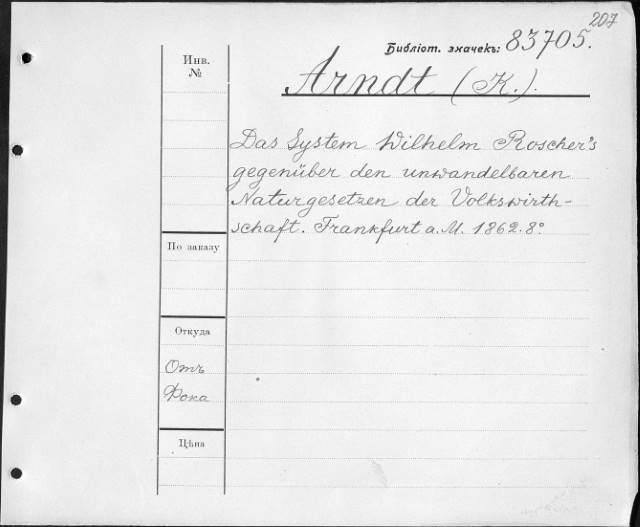 207
Библіот. значекъ: 83705.
Инв.
№
Arndt (K.).
Das System Wilhelm Roscher's
gegenüber den unwandelbaren
Naturgesetzen der Volkswirth-
schaft. Frankfurt a. M. 1862. 8°
По заказу
Откуда
Отъ
Фока
Цѣна